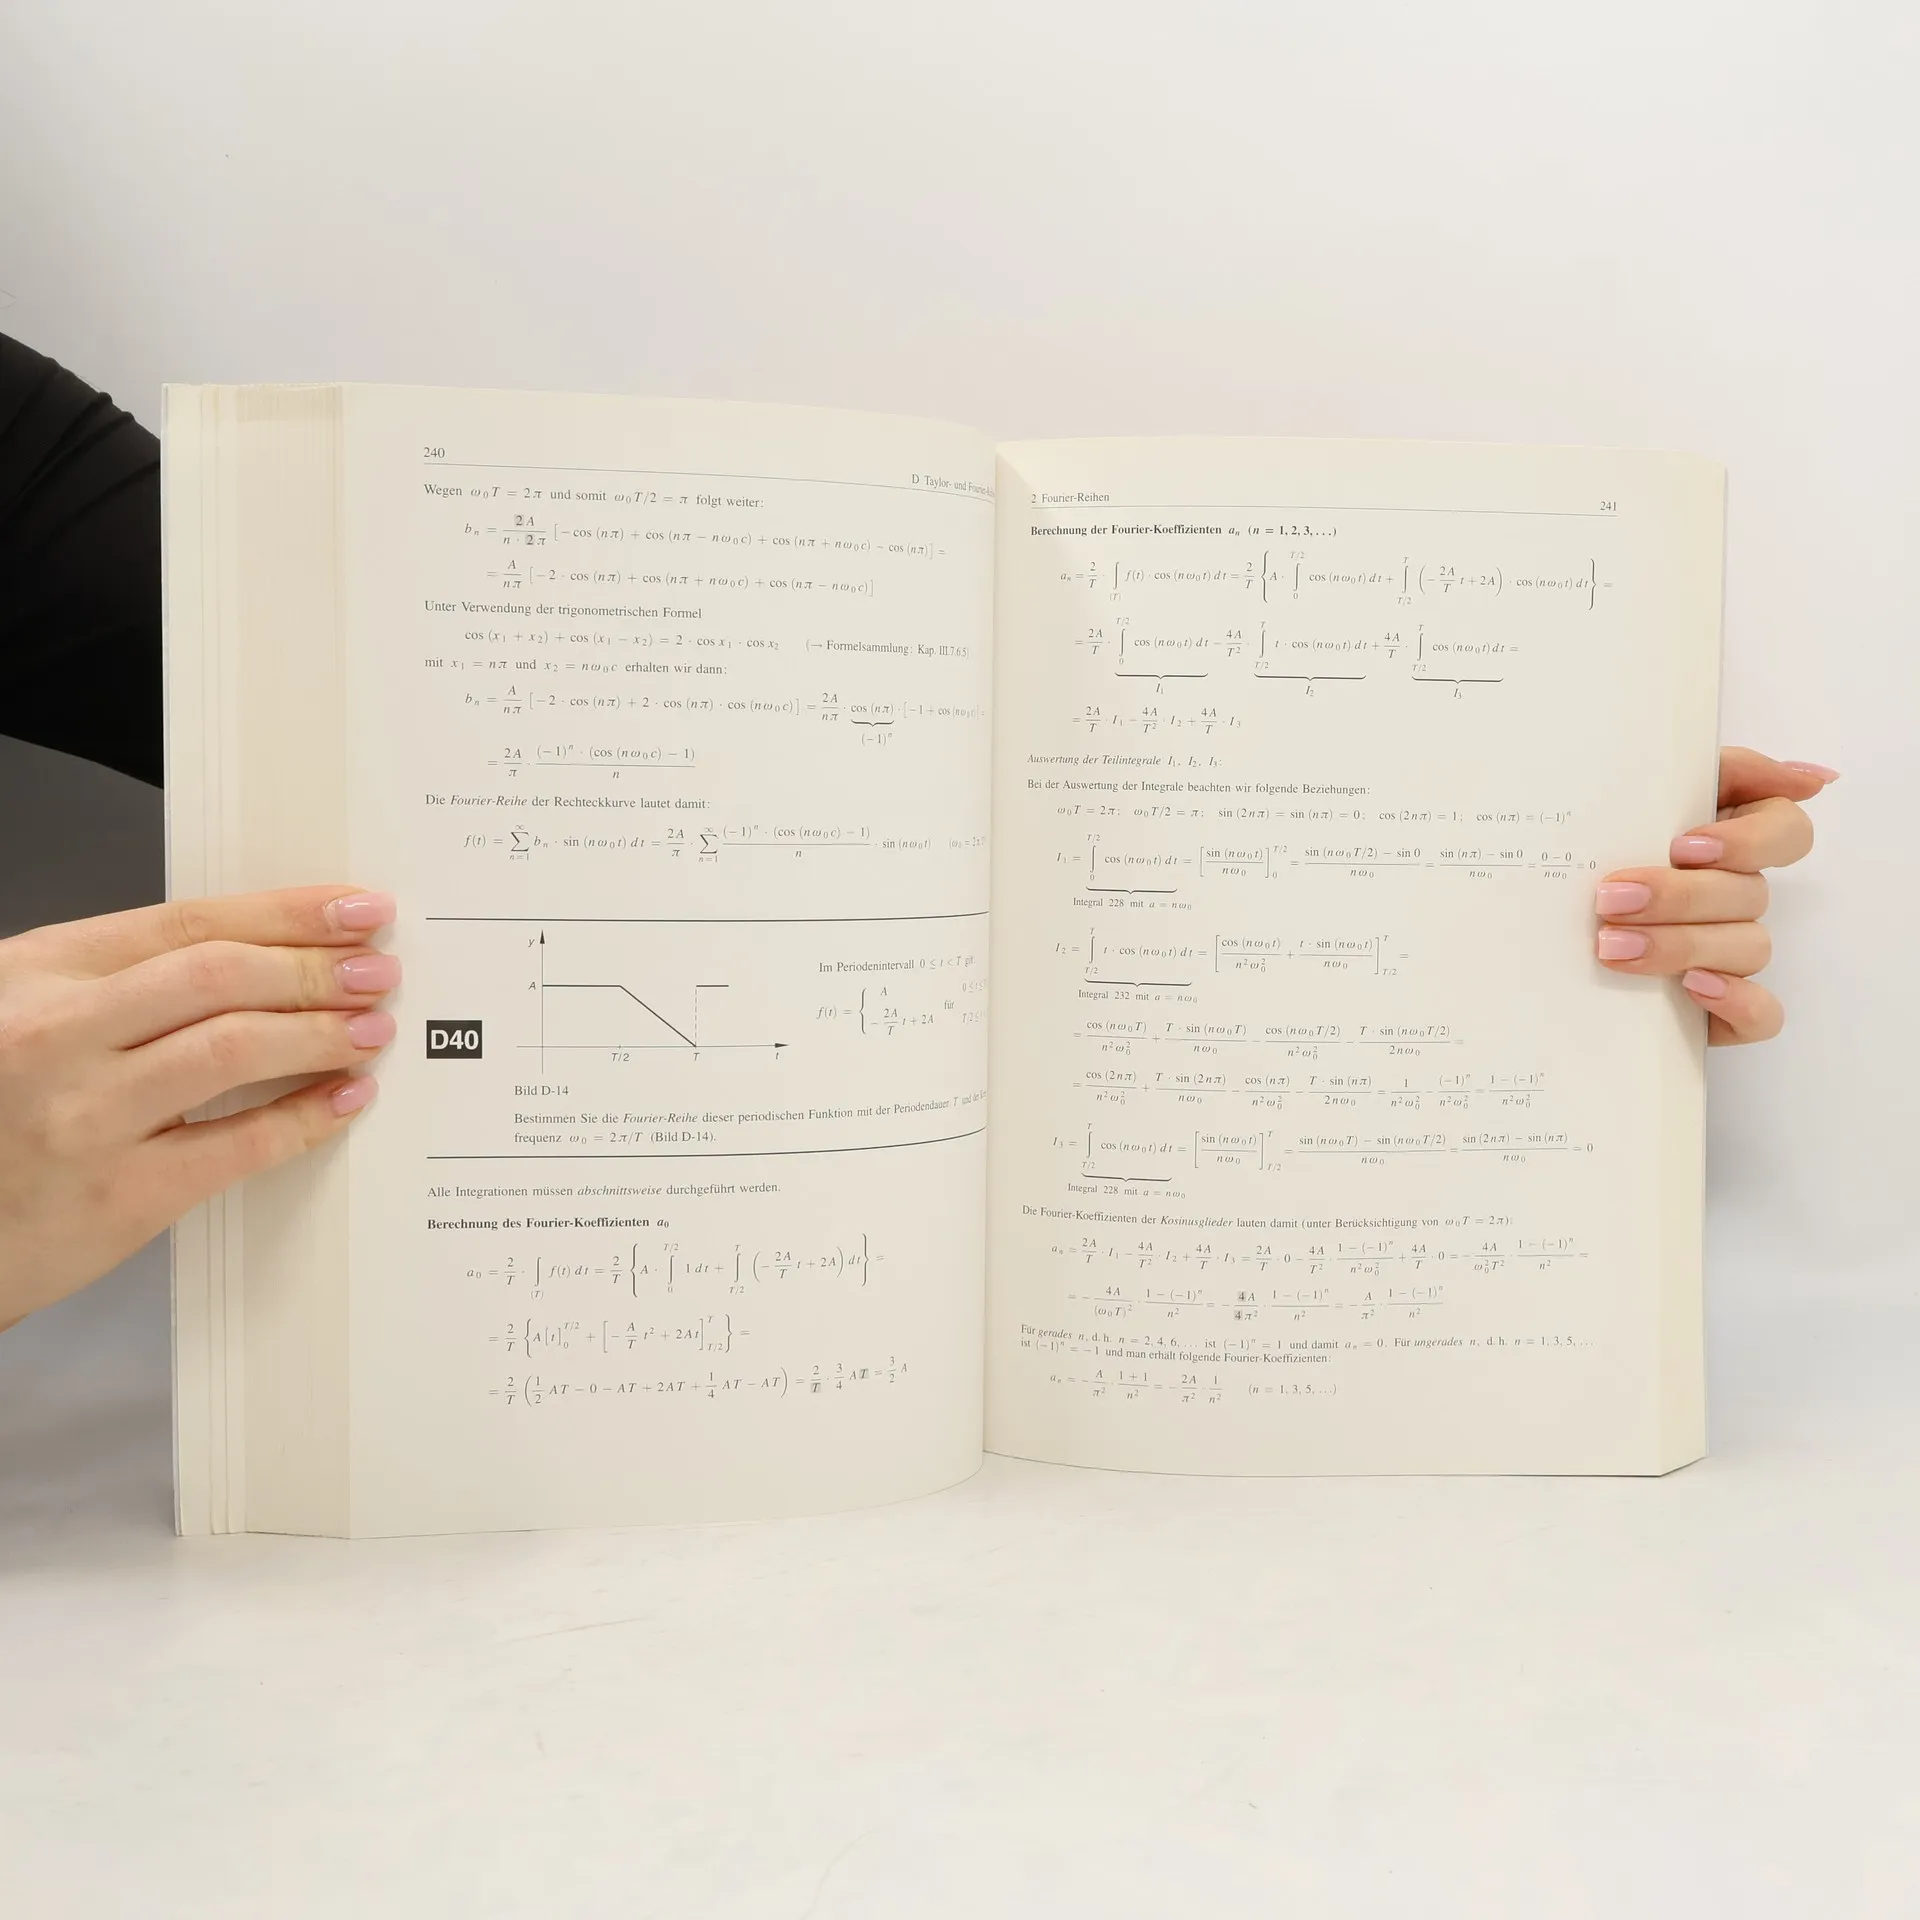 240
D Taylor- und
Wegen ω₀T = 2π und somit ω₀T/2 = π folgt weiter:
bₙ = 2A / (n · 2π) [−cos (nπ) + cos (nπ − nω₀c) + cos (nπ + nω₀c) − cos (nπ)] =
= A / (nπ) [−2 · cos (nπ) + cos (nπ + nω₀c) + cos (nπ − nω₀c)]
Unter Verwendung der trigonometrischen Formel
cos (x₁ + x₂) + cos (x₁ − x₂) = 2 · cos x₁ · cos x₂ (→ Formelsammlung: Kap. III.7.6.5)
mit x₁ = nπ und x₂ = nω₀c erhalten wir dann:
bₙ = A / (nπ) [−2 · cos (nπ) + 2 · cos (nπ) · cos (nω₀c)] = 2A / (nπ) · cos (nπ) · [−1 + cos (nω₀c)] =
(−1)ⁿ
= 2A / π · (−1)ⁿ · (cos (nω₀c) − 1) / n
Die Fourier-Reihe der Rechteckkurve lautet damit:
f(t) = ∑ₙ₌₁^∞ bₙ · sin (nω₀t) dt = 2A / π · ∑ₙ₌₁^∞ (−1)ⁿ · (cos (nω₀c) − 1) / n · sin (nω₀t)
D40
y
A
T/2 T t
Im Periodenintervall 0 ≤ t < T gilt:
f(t) = { A
−2A/T t + 2A für
Bild D-14
Bestimmen Sie die Fourier-Reihe dieser periodischen Funktion mit der Periodendauer T und der
frequenz ω₀ = 2π/T (Bild D-14).
Alle Integrationen müssen abschnittsweise durchgeführt werden.
Berechnung des Fourier-Koeffizienten a₀
a₀ = 2/T · ∫₍T₎ f(t) dt = 2/T { A · ∫₀^{T/2} 1 dt + ∫_{T/2}^T (−2A/T t + 2A) dt } =
= 2/T { A[t]₀^{T/2} + [−A/T t² + 2At]_{T/2}^T } =
= 2/T (1/2 AT − 0 − AT + 2AT + 1/4 AT − AT) = 2/T · 3/4 AT = 3/2 A
2 Fourier-Reihen
241
Berechnung der Fourier-Koeffizienten aₙ (n = 1, 2, 3, . . .)
aₙ = 2/T · ∫₍T₎ f(t) · cos (nω₀t) dt = 2/T { A · ∫₀^{T/2} cos (nω₀t) dt + ∫_{T/2}^T (−2A/T t + 2A) · cos (nω₀t) dt } =
= 2A/T · ∫₀^{T/2} cos (nω₀t) dt − 4A/T² · ∫_{T/2}^T t · cos (nω₀t) dt + 4A/T · ∫_{T/2}^T cos (nω₀t) dt =
I₁ I₂ I₃
= 2A/T · I₁ − 4A/T² · I₂ + 4A/T · I₃
Auswertung der Teilintegrale I₁, I₂, I₃:
Bei der Auswertung der Integrale beachten wir folgende Beziehungen:
ω₀T = 2π; ω₀T/2 = π; sin (2nπ) = sin (nπ) = 0; cos (2nπ) = 1; cos (nπ) = (−1)ⁿ
I₁ = ∫₀^{T/2} cos (nω₀t) dt = [sin (nω₀t) / nω₀]₀^{T/2} = (sin (nω₀T/2) − sin 0) / nω₀ = (sin (nπ) − sin 0) / nω₀ = (0 − 0) / nω₀ = 0
Integral 228 mit a = nω₀
I₂ = ∫_{T/2}^T t · cos (nω₀t) dt = [cos (nω₀t) / n²ω₀² + t · sin (nω₀t) / nω₀]_{T/2}^T =
Integral 232 mit a = nω₀
= cos (nω₀T) / n²ω₀² + T · sin (nω₀T) / nω₀ − cos (nω₀T/2) / n²ω₀² − T · sin (nω₀T/2) / 2nω₀ =
= cos (2nπ) / n²ω₀² + T · sin (2nπ) / nω₀ − cos (nπ) / n²ω₀² − T · sin (nπ) / 2nω₀ = 1 / n²ω₀² − (−1)ⁿ / n²ω₀² = (1 − (−1)ⁿ) / n²ω₀²
I₃ = ∫_{T/2}^T cos (nω₀t) dt = [sin (nω₀t) / nω₀]_{T/2}^T = (sin (nω₀T) − sin (nω₀T/2)) / nω₀ = (sin (2nπ) − sin (nπ)) / nω₀ = 0
Integral 228 mit a = nω₀
Die Fourier-Koeffizienten der Kosinusglieder lauten damit (unter Berücksichtigung von ω₀T = 2π):
aₙ = 2A/T · I₁ − 4A/T² · I₂ + 4A/T · I₃ = 2A/T · 0 − 4A/T² · (1 − (−1)ⁿ) / n²ω₀² + 4A/T · 0 = −4A / ω₀²T² · (1 − (−1)ⁿ) / n² =
= −4A / (ω₀T)² · (1 − (−1)ⁿ) / n² = −4A / 4π² · (1 − (−1)ⁿ) / n² = −A/π² · (1 − (−1)ⁿ) / n²
Für gerades n, d. h. n = 2, 4, 6, . . . ist (−1)ⁿ = 1 und damit aₙ = 0. Für ungerades n, d. h. n = 1, 3, 5, . . .
ist (−1)ⁿ = −1 und man erhält folgende Fourier-Koeffizienten:
aₙ = −A/π² · (1 + 1) / n² = −2A/π² · 1/n² (n = 1, 3, 5, . . .)